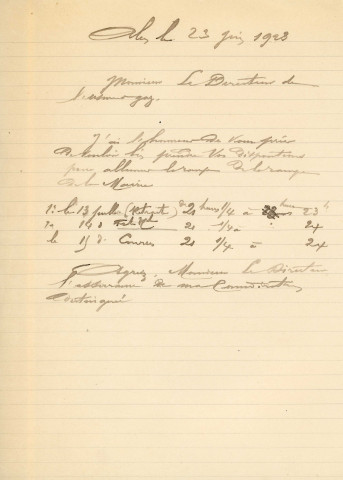 le 23 juin 1923
Monsieur Le Directeur de
l'usine gaz
J'ai l'honneur de vous prier
de vouloir bien prendre vos dispositions
pour allumer
de la Marine
1° le 13 juillet de 21 heures 1/4 à heures 23 h
2° 14 d° 21 1/4 à " 24
le 15 d° Courses 21 1/4 à " 24
Agréez, Monsieur Le Directeur
l'assurance de ma Considération
distinguée